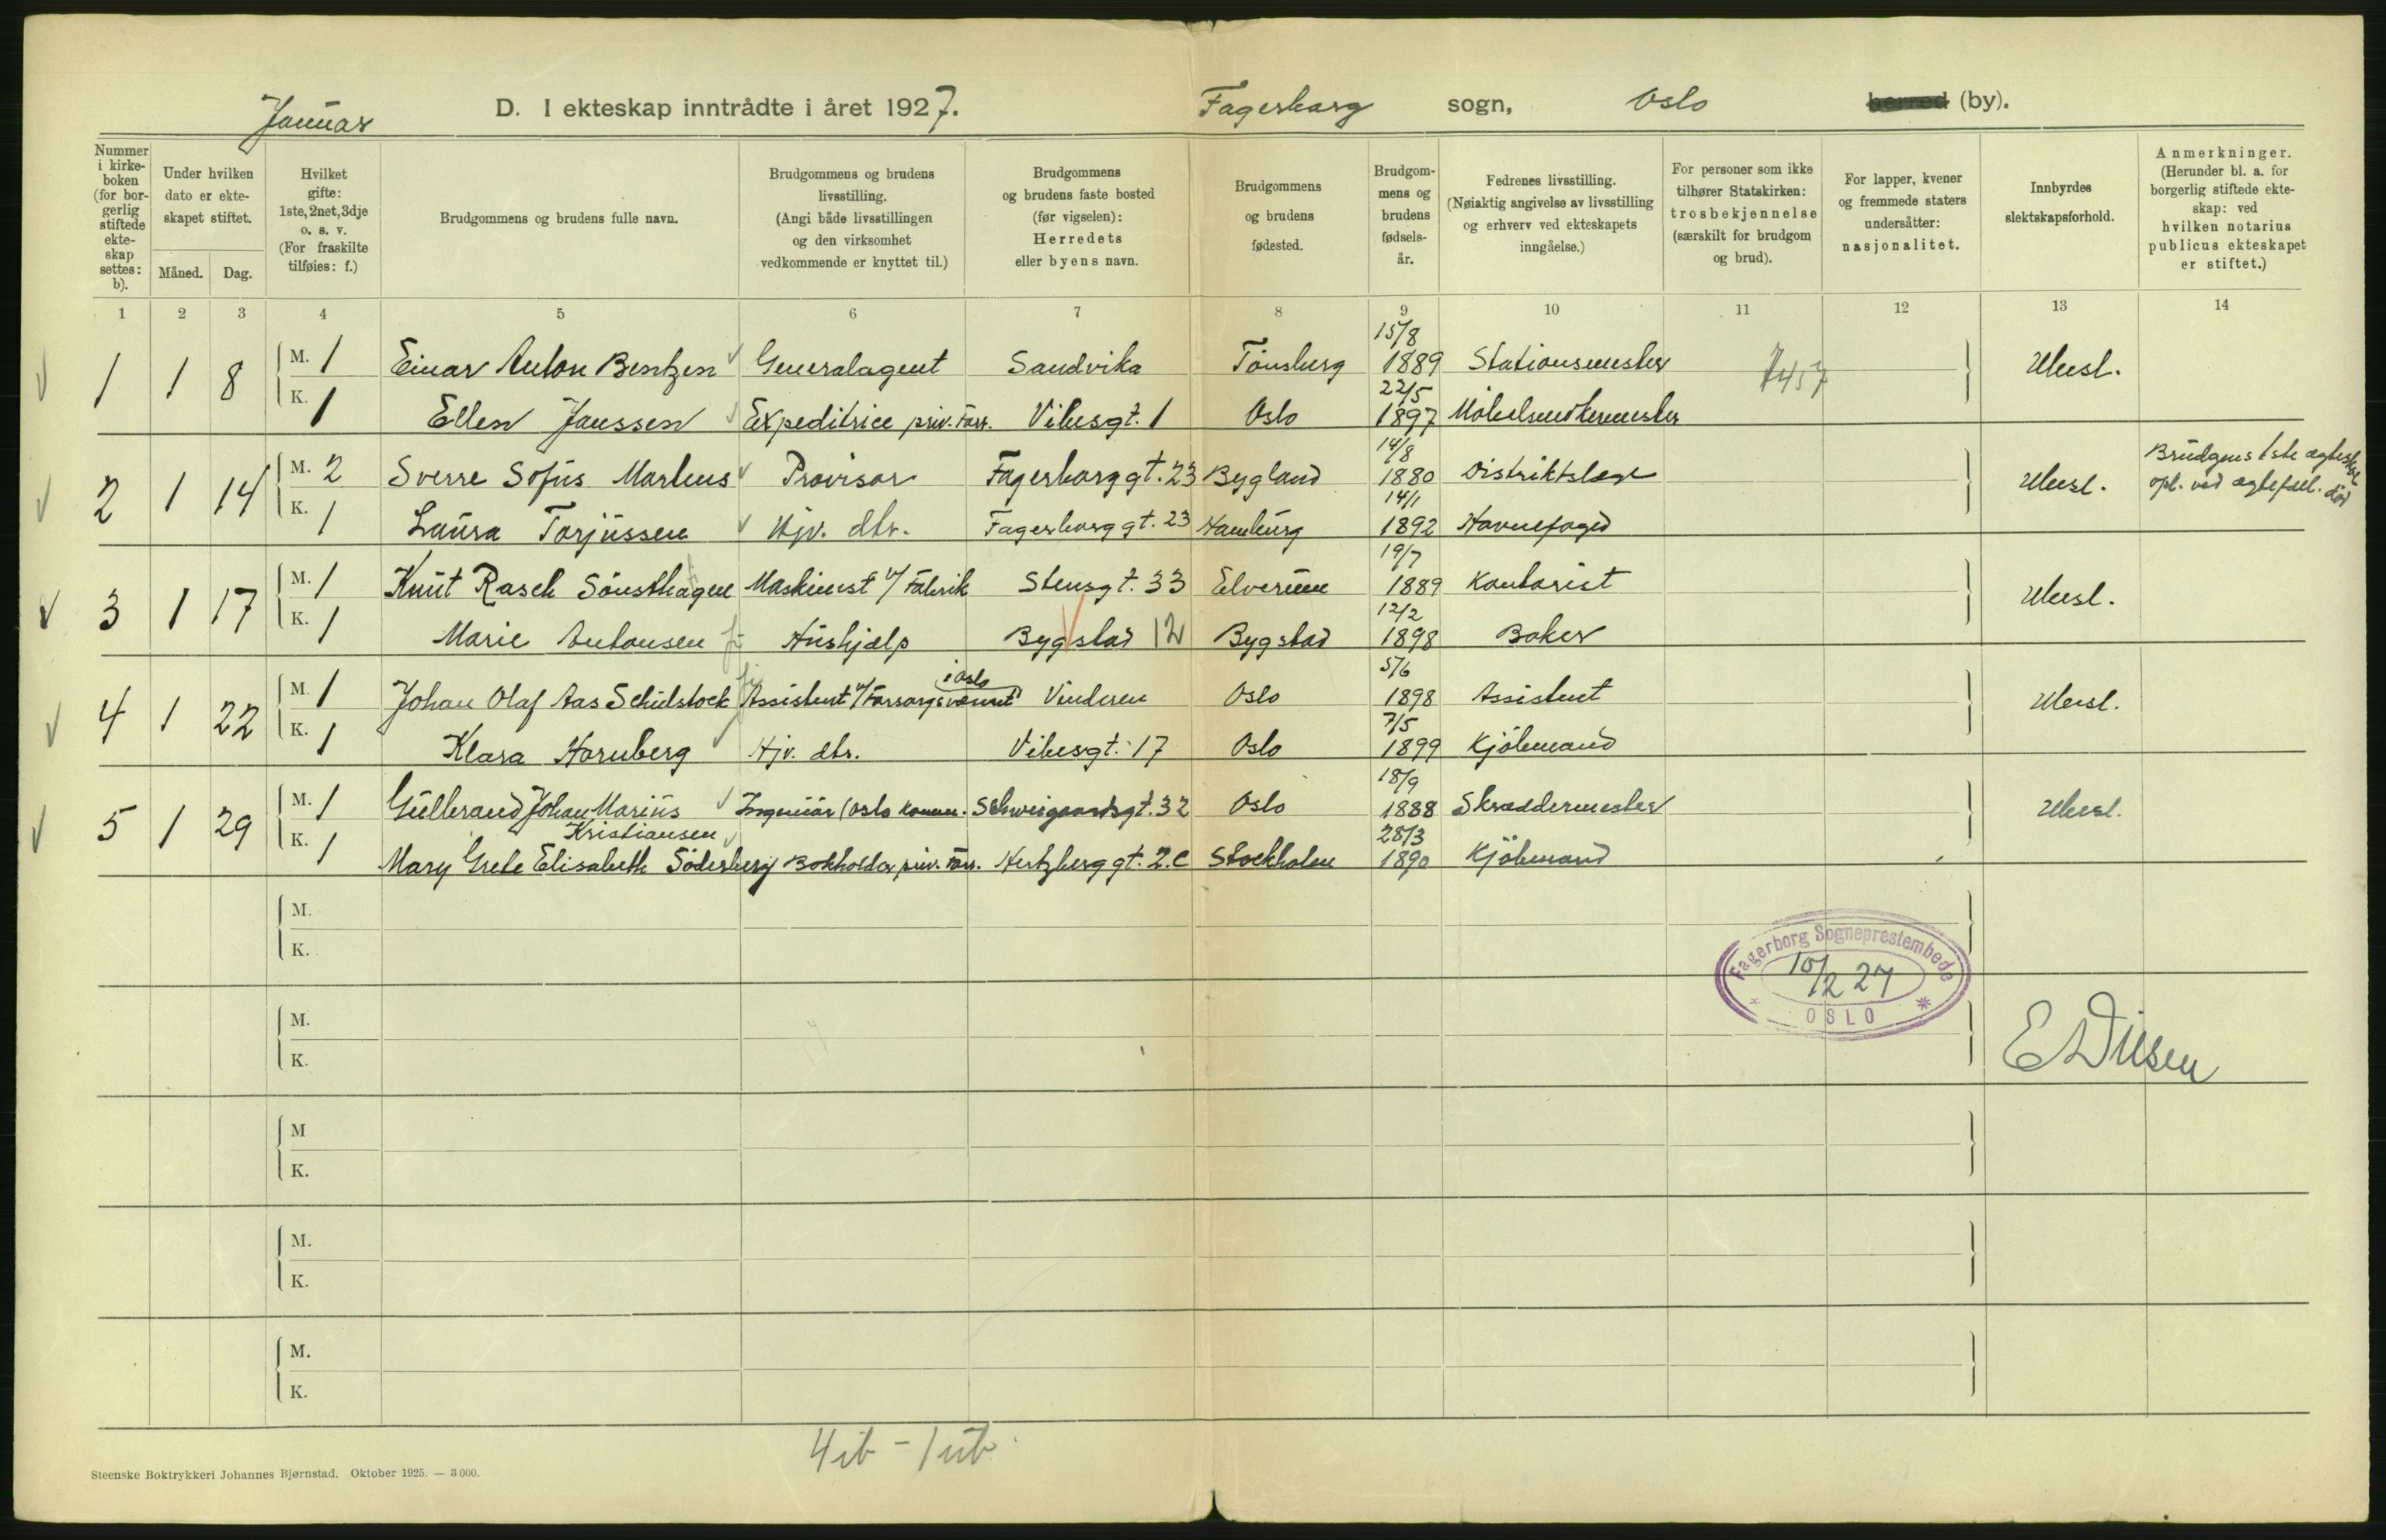 Januar
D. I ekteskap inntrådte i året 1927.
Fagerborg sogn, Oslo herred (by).
Nummer i kirkeboken (for borgerlig stiftede ekteskap settes: b).
Under hvilken dato er ekteskapet stiftet.
Måned. Dag.
Hvilket gifte: 1ste, 2net, 3dje o. s. v. (For fraskilte tilføies: f.)
Brudgommens og brudens fulle navn.
Brudgommens og brudens livsstilling. (Angi både livsstillingen og den virksomhet vedkommende er knyttet til.)
Brudgommens og brudens faste bosted (før vigselen): Herredets eller byens navn.
Brudgommens og brudens fødested.
Brudgommens og brudens fødselsår.
Fedrenes livsstilling. (Nøiaktig angivelse av livsstilling og erhverv ved ekteskapets inngåelse.)
For personer som ikke tilhører Statskirken: trosbekjennelse (særskilt for brudgom og brud).
For lapper, kvener og fremmede staters undersåtter: nasjonalitet.
Innbyrdes slektskapsforhold.
Anmerkninger. (Herunder bl. a. for borgerlig stiftede ekteskap: ved hvilken notarius publicus ekteskapet er stiftet.)
1 2 3 4 5 6 7 8 9 10 11 12 13 14
1 1 8 M. 1 Einar Anton Bentzen Generalagent Sandvika Tönsberg 15/8 1889 Stationsmester 7457 Ubesl.
K. 1 Ellen Janssen Expeditrice priv. Forr. Vibesgt. 1 Oslo 22/5 1897 Möbelsnedkermester
2 1 14 M. 2 Sverre Sofus Martens Provisor Fagerborggt. 23 Bygland 14/8 1880 Distriktslæge Ubesl. Brudgms 1ste ægtesk. opl. ved ægtefæll. död
K. 1 Laura Torjussen Hjv. dtr. Fagerborggt. 23 Hamburg 14/1 1892 Havnefoged
3 1 17 M. 1 Knut Rasch Sönsthagen Maskinist v/ Fabrik Stensgt. 33 Elverum 19/7 1889 Kontorist Ubesl.
K. 1 Marie Antonsen Hushjælp Bygstad 12 Bygstad 12/2 1898 Baker
4 1 22 M. 1 Johan Olaf Aas Schulstock Assistent v/ Forsorgsvæsnet i Oslo Vinderen Oslo 5/6 1898 Assistent Ubesl.
K. 1 Klara Hornberg Hjv. dtr. Vibesgt. 17 Oslo 7/5 1899 Kjöbmand
5 1 29 M. 1 Gulbrand Johan Marius Kristiansen Ingeniör (Oslo Komm. Schweigaardsgt. 32 Oslo 18/9 1888 Skræddermester Ubesl.
K. 1 Mary Grete Elisabeth Söderberg Bokholder priv. Forr. Hertzberggt. 2.C Stockholm 28/3 1890 Kjöbmand
M.
K.
Fagerborg Sogneprestembede
10/2 27
OSLO
M.
K.
M
K.
M.
K.
M.
K.
4 ib - 1 ub
Steenske Boktrykkeri Johannes Bjørnstad. Oktober 1925. — 3000.